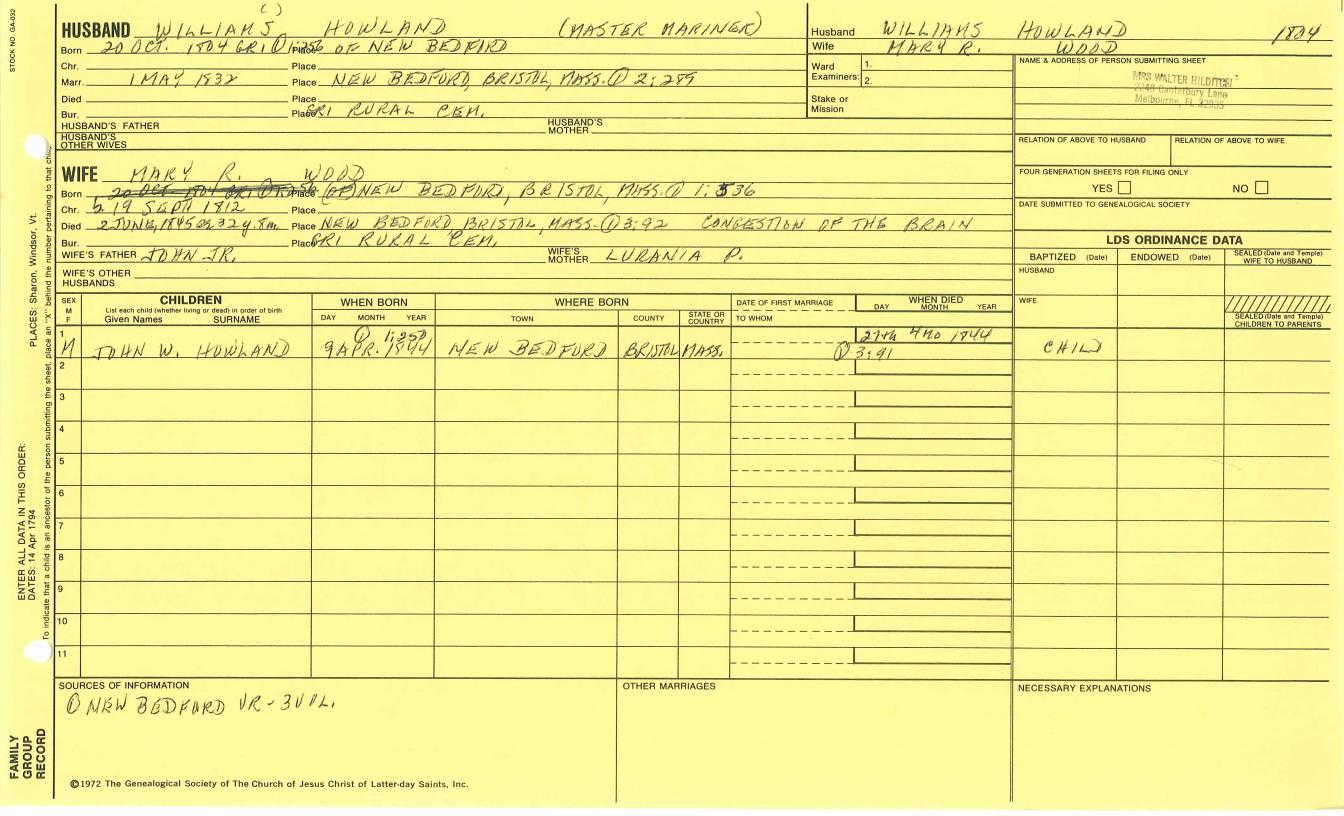 STOCK NO. GA-032
( )
HUSBAND WILLIAMS HOWLAND (MASTER MARINER)
Born 20 OCT. 1804 GRI ① 1:256 Place OF NEW BEDFORD
Chr. Place
Marr. 1 MAY 1832 Place NEW BEDFORD, BRISTOL, MASS. ① 2:289
Died Place
Bur. Place GRI RURAL CEM.
HUSBAND'S FATHER HUSBAND'S MOTHER
HUSBAND'S OTHER WIVES
WIFE MARY R. WOOD
Born 20 OCT 1804 GRI Place (OF) NEW BEDFORD, BRISTOL, MASS. ① 1:536
Chr. 19 SEPT 1812 Place
Died 2 JUNE, 1845 32y.8m Place NEW BEDFORD BRISTOL, MASS. ① 3:92 CONGESTION OF THE BRAIN
Bur. Place GRI RURAL CEM.
WIFE'S FATHER JOHN JR. WIFE'S MOTHER LURANIA P.
WIFE'S OTHER HUSBANDS
Husband WILLIAMS HOWLAND 1804
Wife MARY R. WOOD
Ward Examiners: 1.
2.
Stake or Mission
NAME & ADDRESS OF PERSON SUBMITTING SHEET
MRS WALTER HILDITCH
Canterbury Lane
Melbourne, FL 32935
RELATION OF ABOVE TO HUSBAND RELATION OF ABOVE TO WIFE
FOUR GENERATION SHEETS FOR FILING ONLY
YES NO
DATE SUBMITTED TO GENEALOGICAL SOCIETY
LDS ORDINANCE DATA
BAPTIZED (Date) ENDOWED (Date) SEALED (Date and Temple) WIFE TO HUSBAND
HUSBAND
WIFE
SEALED (Date and Temple) CHILDREN TO PARENTS
SEX M F
CHILDREN
List each child (whether living or dead) in order of birth
Given Names SURNAME
WHEN BORN
DAY MONTH YEAR
WHERE BORN
TOWN COUNTY STATE OR COUNTRY
DATE OF FIRST MARRIAGE
TO WHOM
WHEN DIED
DAY MONTH YEAR
① 1:250 27th 4 MO 1844
1 M JOHN W. HOWLAND 9 APR. 1844 NEW BEDFORD BRISTOL MASS. ① 3:91 CHILD
2
3
4
5
6
7
8
9
10
11
SOURCES OF INFORMATION
① NEW BEDFORD VR - 3 VOL.
OTHER MARRIAGES
NECESSARY EXPLANATIONS
©1972 The Genealogical Society of The Church of Jesus Christ of Latter-day Saints, Inc.
ENTER ALL DATA IN THIS ORDER:
DATES: 14 Apr 1794
PLACES: Sharon, Windsor, Vt.
To indicate that a child is an ancestor of the person submitting the sheet, place an "X" behind the number pertaining to that child.
FAMILY GROUP RECORD